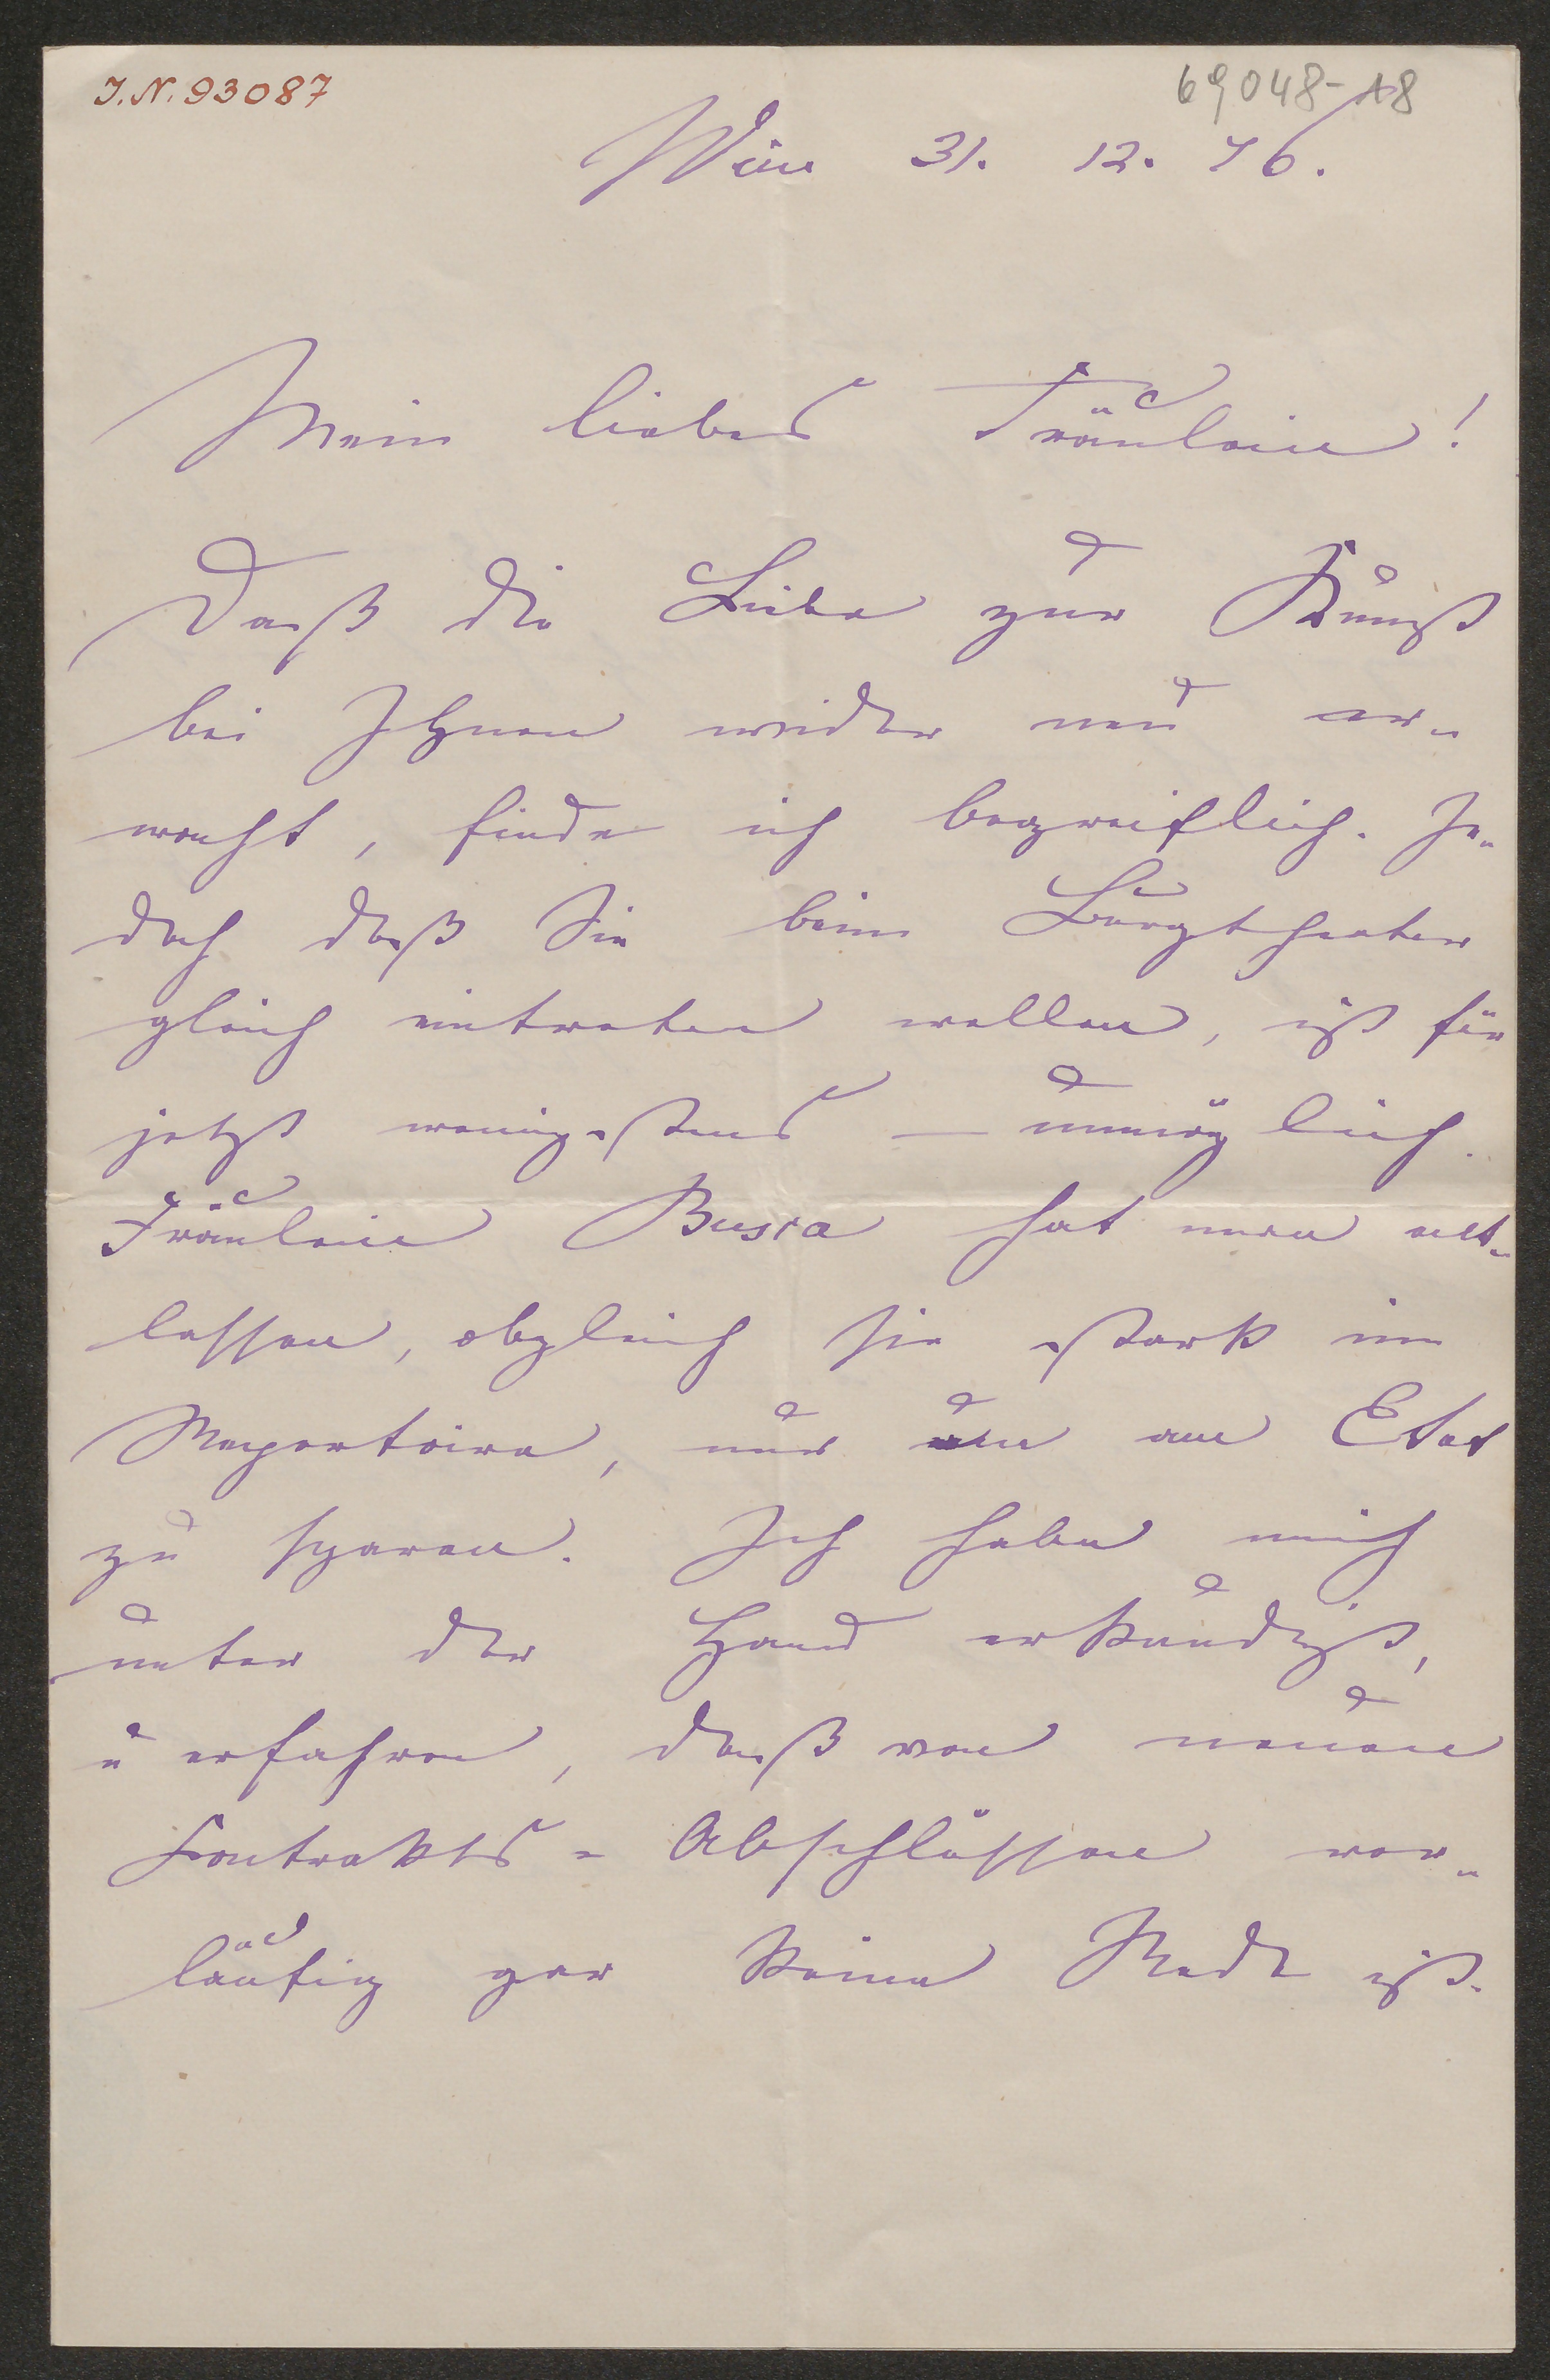 I.N. 93087
69048-A8
Wien 31. 12. 76.
Mein liebes Fräulein!
Daß die Liebe zur Kunst
bei Ihnen wieder neu er-
wacht, finde ich begreiflich. Je-
doch daß Sie beim Burgtheater
gleich eintreten wollen, ist für
jetzt wenigstens — unmöglich.
Fräulein Buska hat man ent-
lassen, obgleich sie stark im
Repertoire, nur um am Etat
zu sparen. Ich habe mich
unter der Hand erkundigt,
u erfahren, daß von neuen
Contrakts-Abschlüssen vor-
läufig gar keine Rede ist.